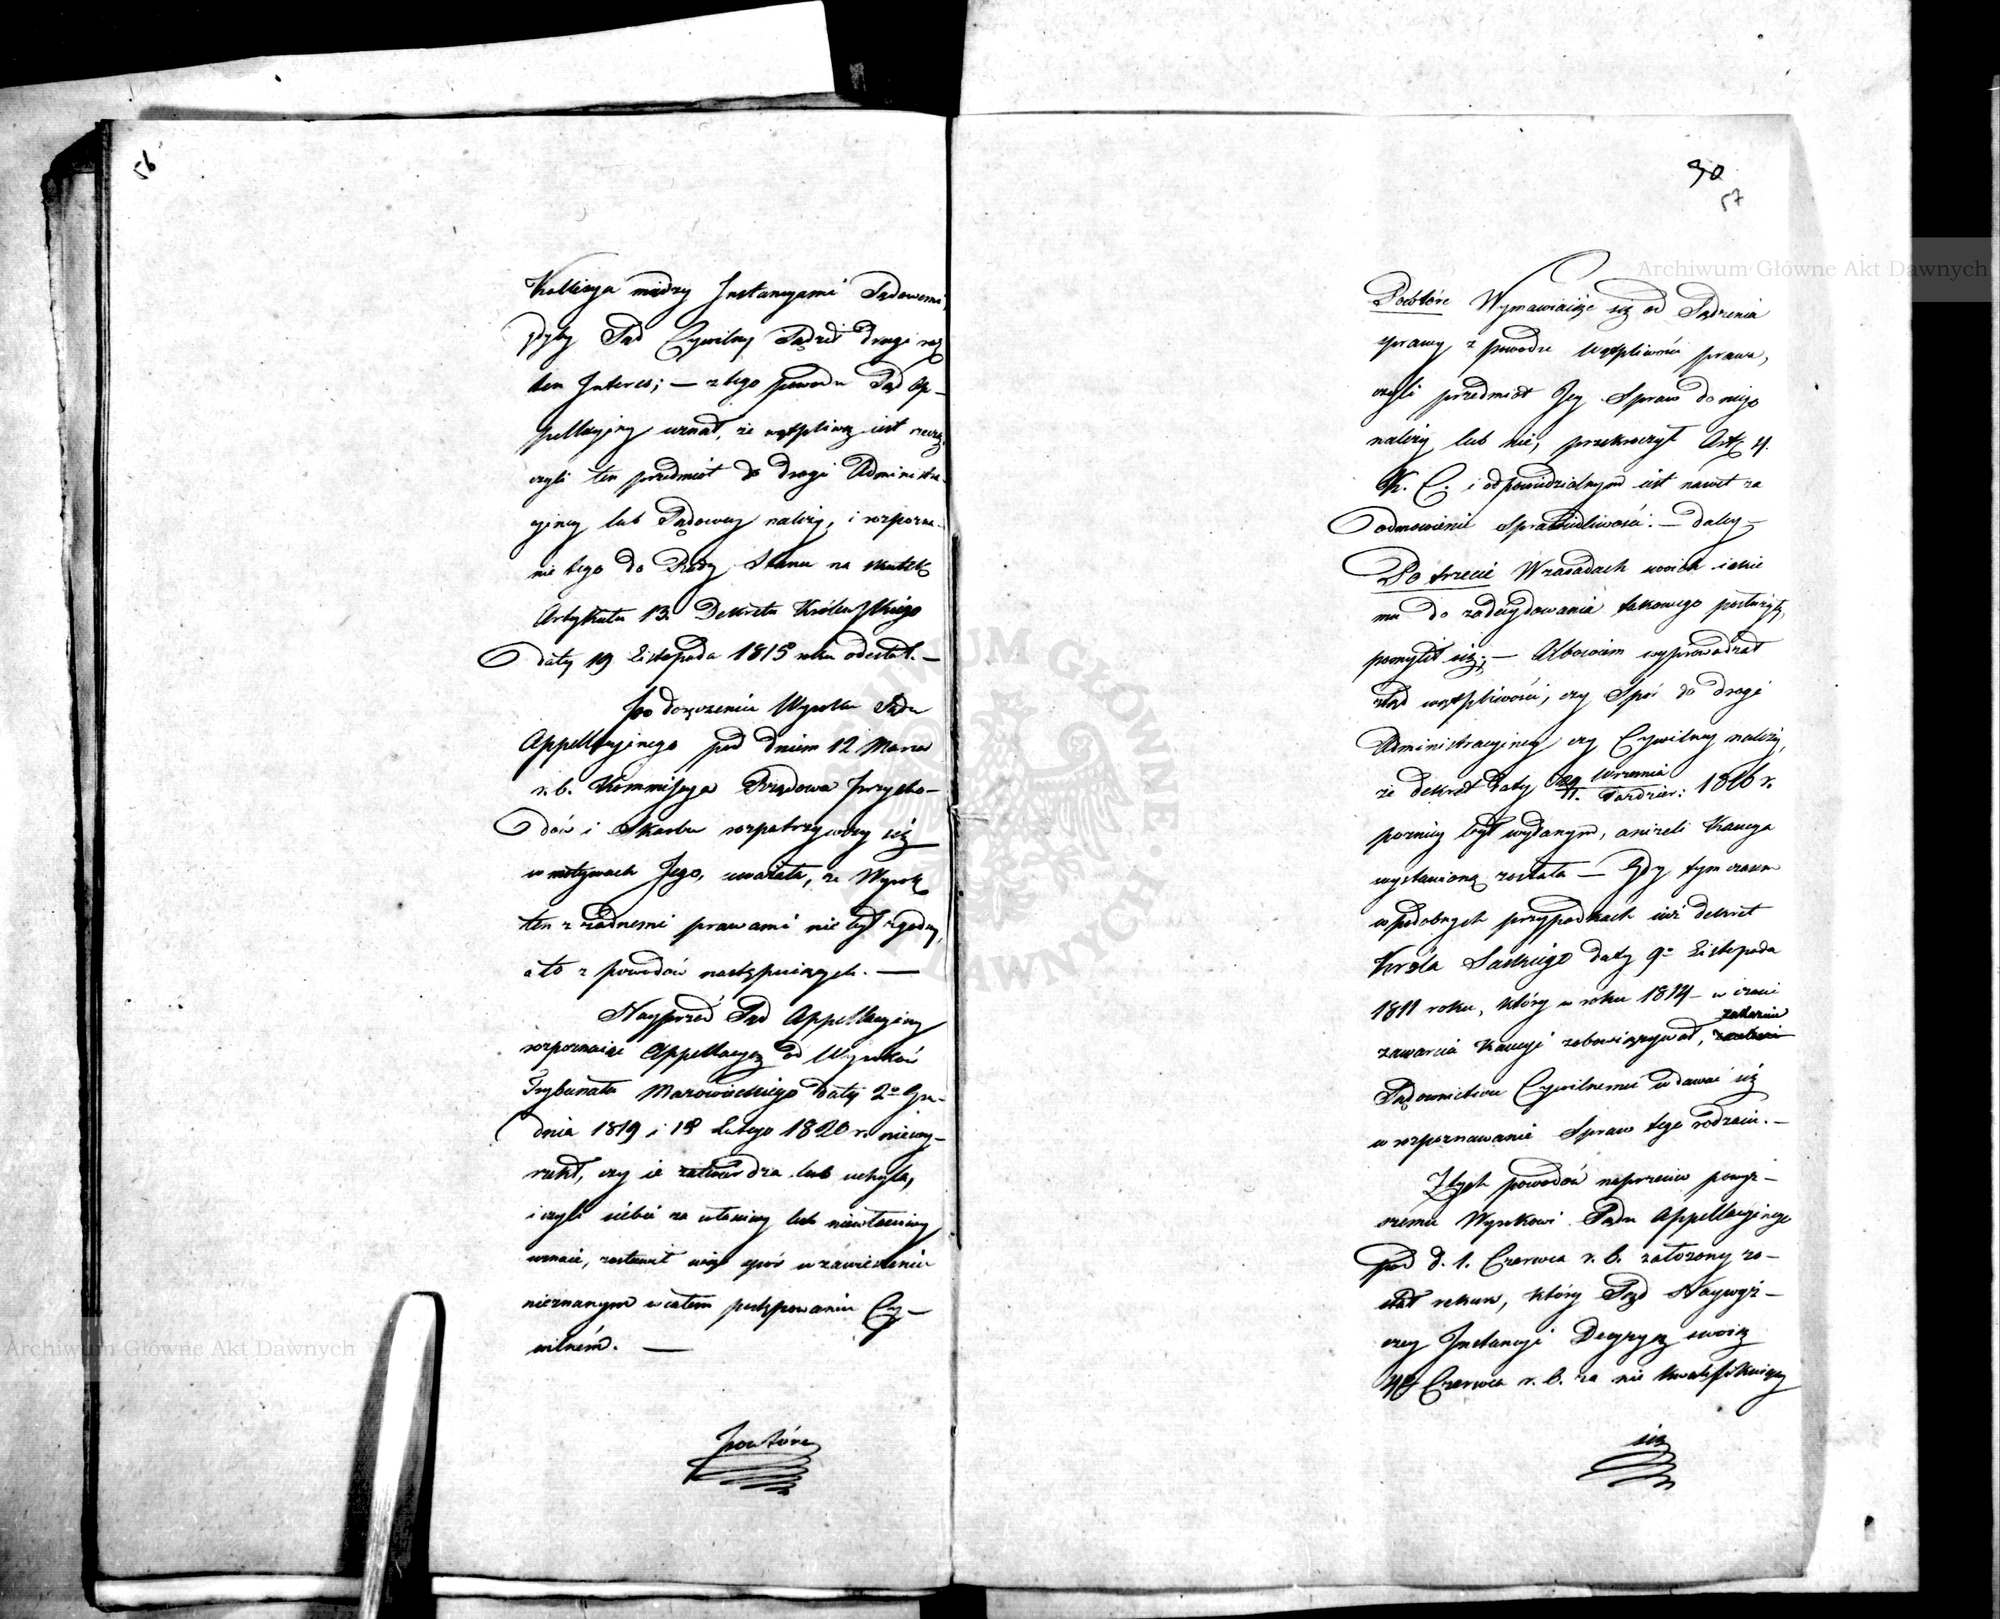 56
Kollizya między Instancyami Sądowemi,
gdyby Sąd Cywilny Sądził drugi raz
ten Interes; — z tego powodu Sąd Ap-
pellacyiny uznał, że wątpliwą iest rzeczą
czyli ten przedmiot do drogi Administra-
cyiney lub Sądowey należy, i rozpozna-
nie tego do Rady Stanu na skutek
Artykułu 13. Dekretu Królewskiego
daty 19 Listopada 1815 roku odesłał. —
Po doręczeniu Wyroku Sądu
Appellacyinego pod dniem 12 Marca
r. b. Kommissya Rządowa Przycho-
dów i Skarbu rozpatrzywszy się
w motywach Jego, uważała, że Wyrok
ten z żadnemi prawami nie był zgodny,
a to z powodów następuiących. —
Nayprzód Sąd Appellacyiny
rozpoznaiąc Appellacyą od Wyroków
Trybunału Mazowieckiego daty 2º Gru-
dnia 1819 i 18 Lutego 1820 r. niewy-
rzekł, czy ie zatwierdza lub uchyla,
i czyli siebie za właściwy lub niewłaściwy
uznaie, zostawił więc spór w zawieszeniu
nieznanym w całem postępowaniu Cy-
wilném. —
powtóre
90
57
Powtóre Wymawiaiąc się od Sądzenia
sprawy z powodu wątpliwości prawa,
czyli przedmiot Jey Spraw do niego
należy lub nie, przekroczył Art. 4.
K. C. i odpowiedzialnym iest nawet za
odmówienie Sprawiedliwości. — daley —
Po trzecie W zasadach swoich iakie
mu do zadecydowania takowego posłużyły,
pomylił się; — Albowiem wyprowadzał
ztąd wątpliwości, czy Spór do drogi
Administracyiney czy Cywilney należy,
że dekret daty 29 Września / 11. Paździer: 1816 r.
pozniey był wydanym, aniżeli Kaucya
wystawioną została — Gdy tym czasem
w podobnych przypadkach iuż dekret
Króla Saskiego daty 9º Listopada
1811 roku, który w roku 1814 — w czasie
zawarcia Kaucyi zobowiązywał, zakazuie
Sądownictwu Cywilnemu wdawać się
w rozpoznawanie Spraw tego rodzaiu. —
Z tych powodów naprzeciw powyż-
szemu Wyrokowi Sądu Appellacyinego
pod d. 1. Czerwca r. b. założony zo-
stał rekurs, który Sąd Naywyż-
szey Instancyi Decyzyą swoią
Czerwca r. b. za nie kwalifikuiący
się
Archiwum Główne Akt Dawnych
Archiwum Główne Akt Dawnych
ARCHIWUM GŁÓWNE AKT DAWNYCH